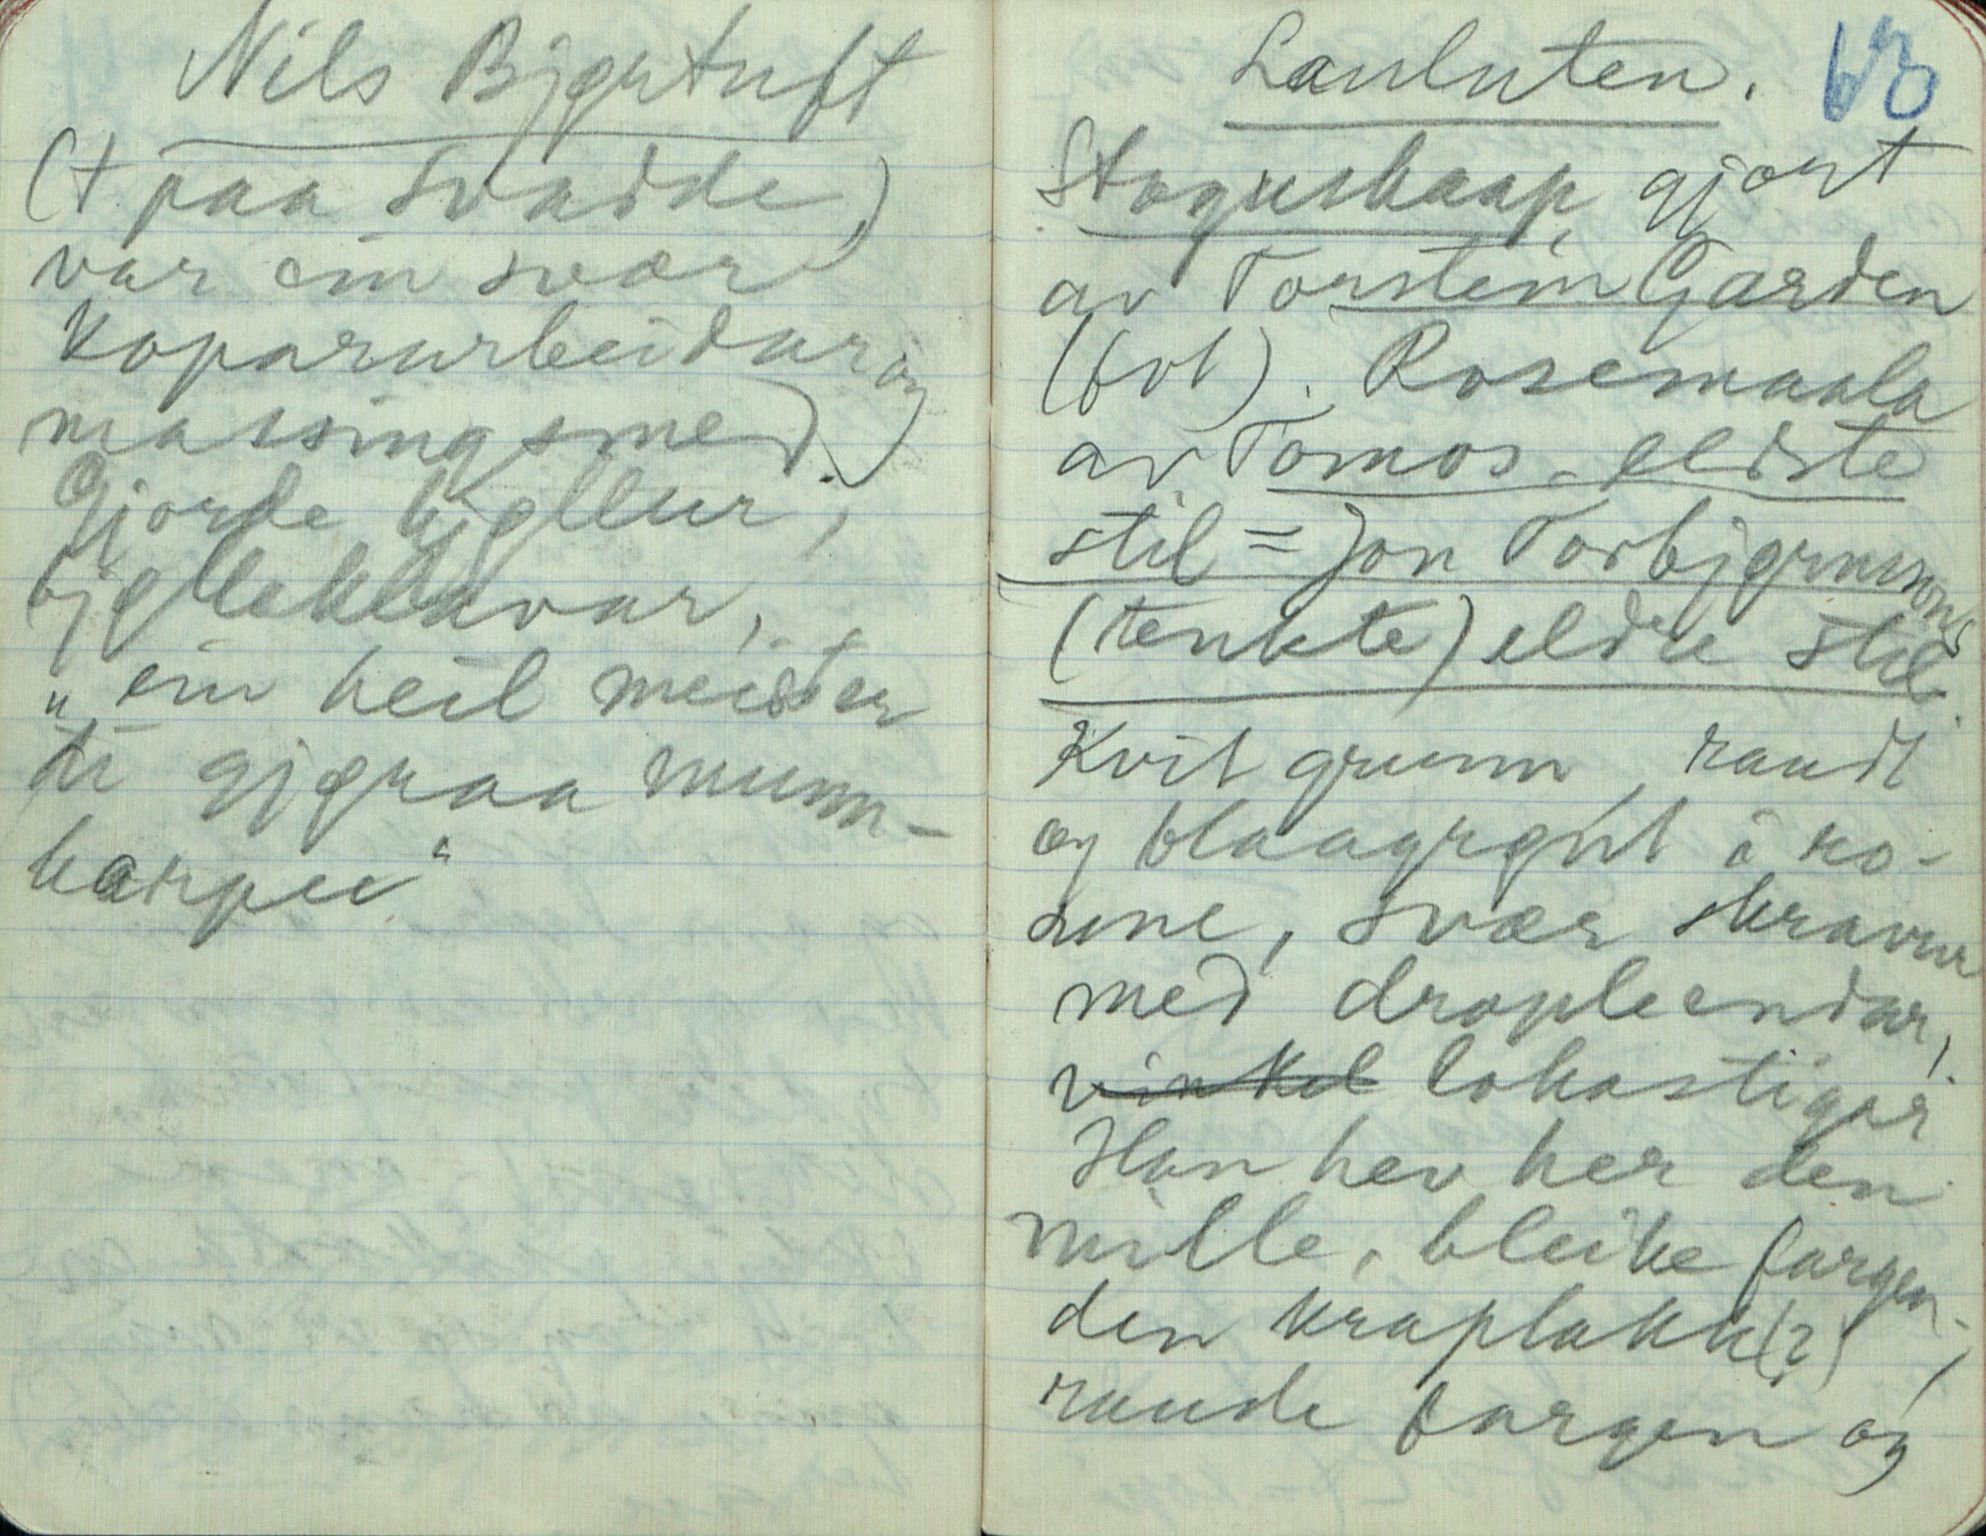 Nils Bjørtuft
(+ paa Svadde)
var ein svær
koparareidar og
massingsmed.
Gjorde bjøllur,
bjølleklavar,
"ein heil meister
ti gjøraa munn-
harpee"
63
Lauluten.
Stoguskaap, gjort
av Torstein Garden
(fot). Rosemaala
av Tomos. eldste
stil = Jon Torbjørnsons
(tenkte) eldre stil.
Kvit grunn, raudt
og blaagrønt i ro-
sune, svær skravur
med dropleendar,
vinkel lokastigar
Han hev her den
mille, bleike fargen,
den kraplakk(?)
raude fargen og